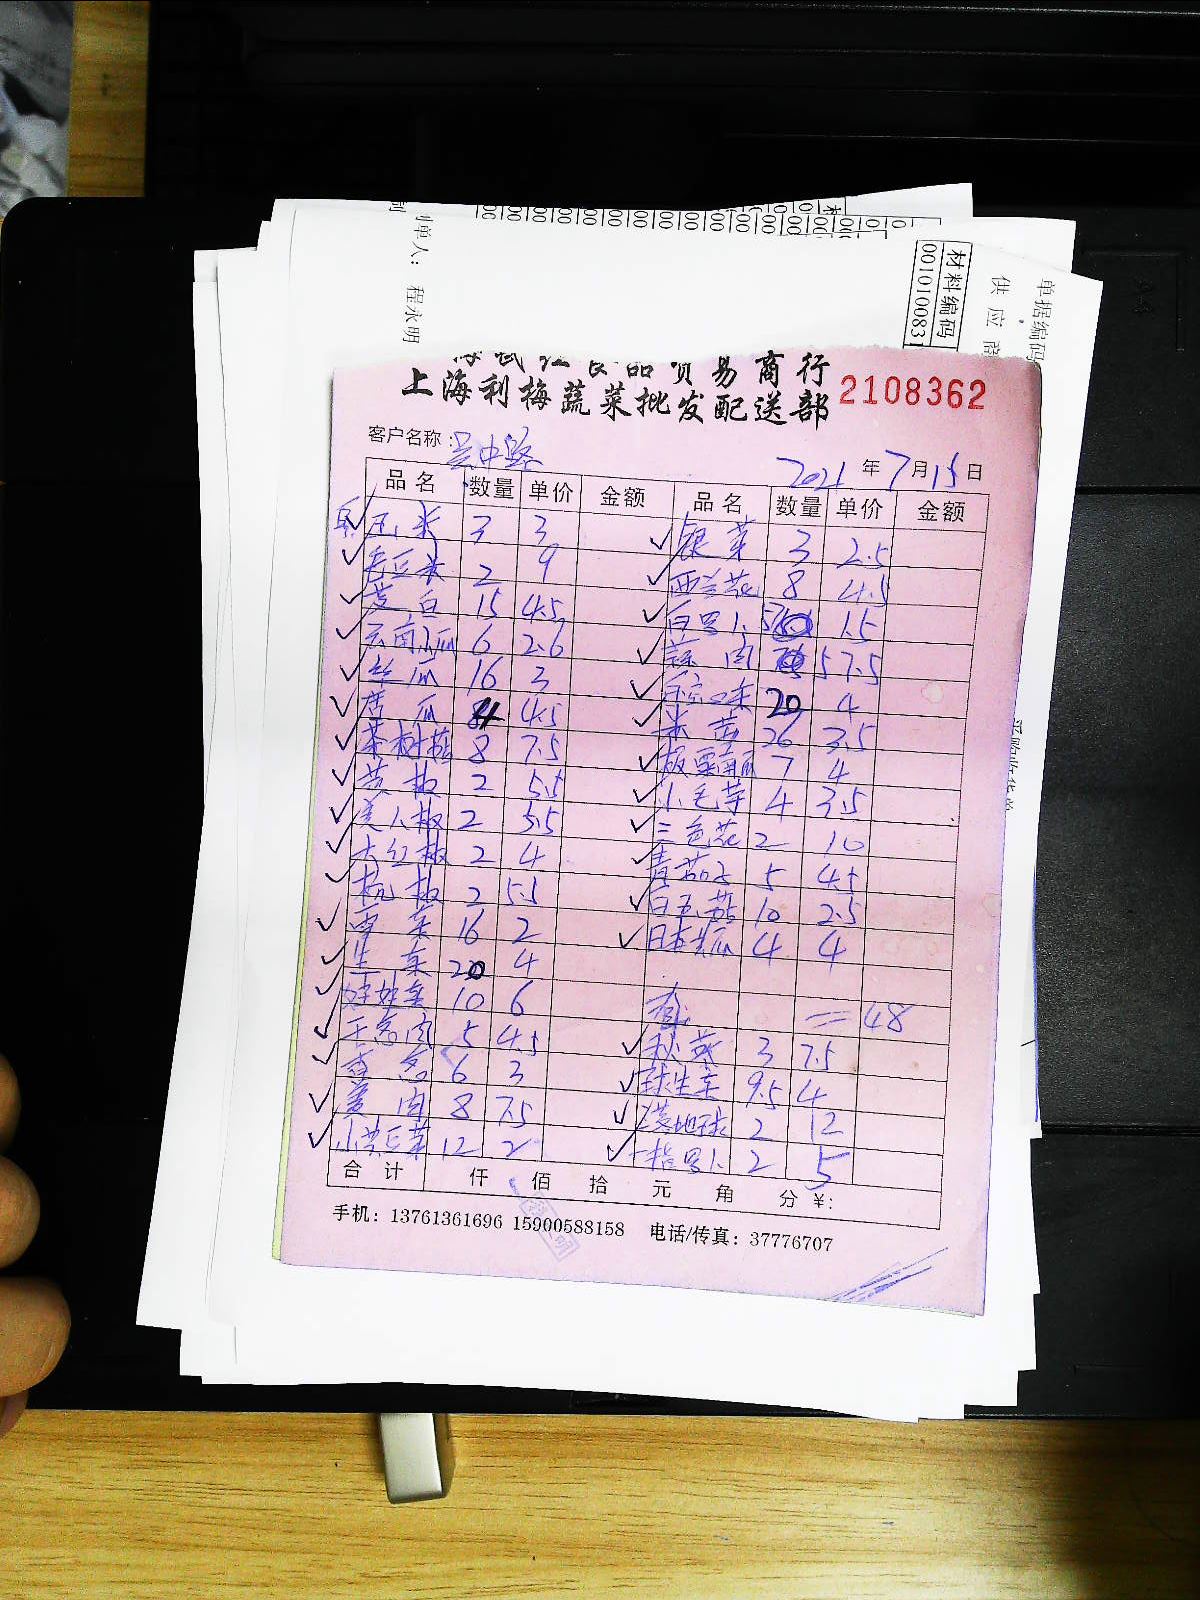 单人：
程永明
材料编码
001010083
单据编码
供应商
上海利梅蔬菜批发配送部
2108362
客户名称：吴中路
2021年7月15日
品名 数量 单价 金额 品名 数量 单价 金额
玉米 3 3 银芽 3 2.5
毛豆米 2 9 西兰花 8 4.5
茭白 15 4.5 白萝卜 1.5
云南小瓜 6 2.6 蒜肉 7.5
丝瓜 16 3 20 4
4.5 米苋 26 3.5
茶树菇 8 7.5 板栗南瓜 7 4
黄椒 2 5.5 小毛芋 4 3.5
美人椒 2 5.5 三色花 2 10
大红椒 2 4 青茄子 5 4.5
杭椒 2 5.5 10 2.5
16 2 日本黄瓜 4 4
生菜 20 4
10 6 48
5 4.5 秋葵 3 7.5
香葱 6 3 球生菜 9.5 4
姜肉 8 7.5 2 12
12 2 2 5
合计 仟 佰 拾 元 角 分 ¥:
手机：13761361696 15900588158 电话/传真：37776707